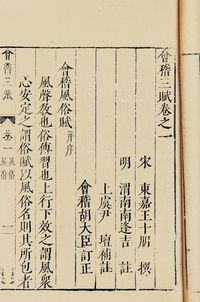 會稽三賦卷之一
宋 東嘉王十朋 撰
明 渭南南逢吉 註
上虞尹 壇補註
會稽胡大臣訂正
會稽風俗賦 并序
風聲教也俗傳習也上行下效之謂風衆
心安定之謂俗賦以風俗名則其所包者
會稽三賦 卷一 風俗 一